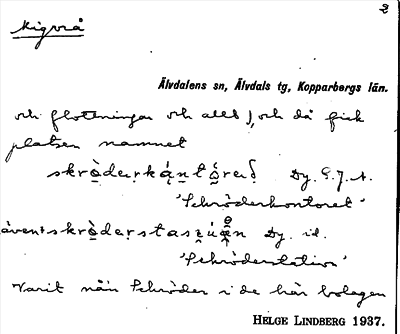 2
Älvdalens sn, Älvdals tg, Kopparbergs län.
och flottningar och allt), och då fick
platsen namnet
Dy. E.J.A.
'Schröderkontoret'
Dy. id.
'Schröderstation'
Varit nån Schröder i de här bolagen
HELGE LINDBERG 1937.